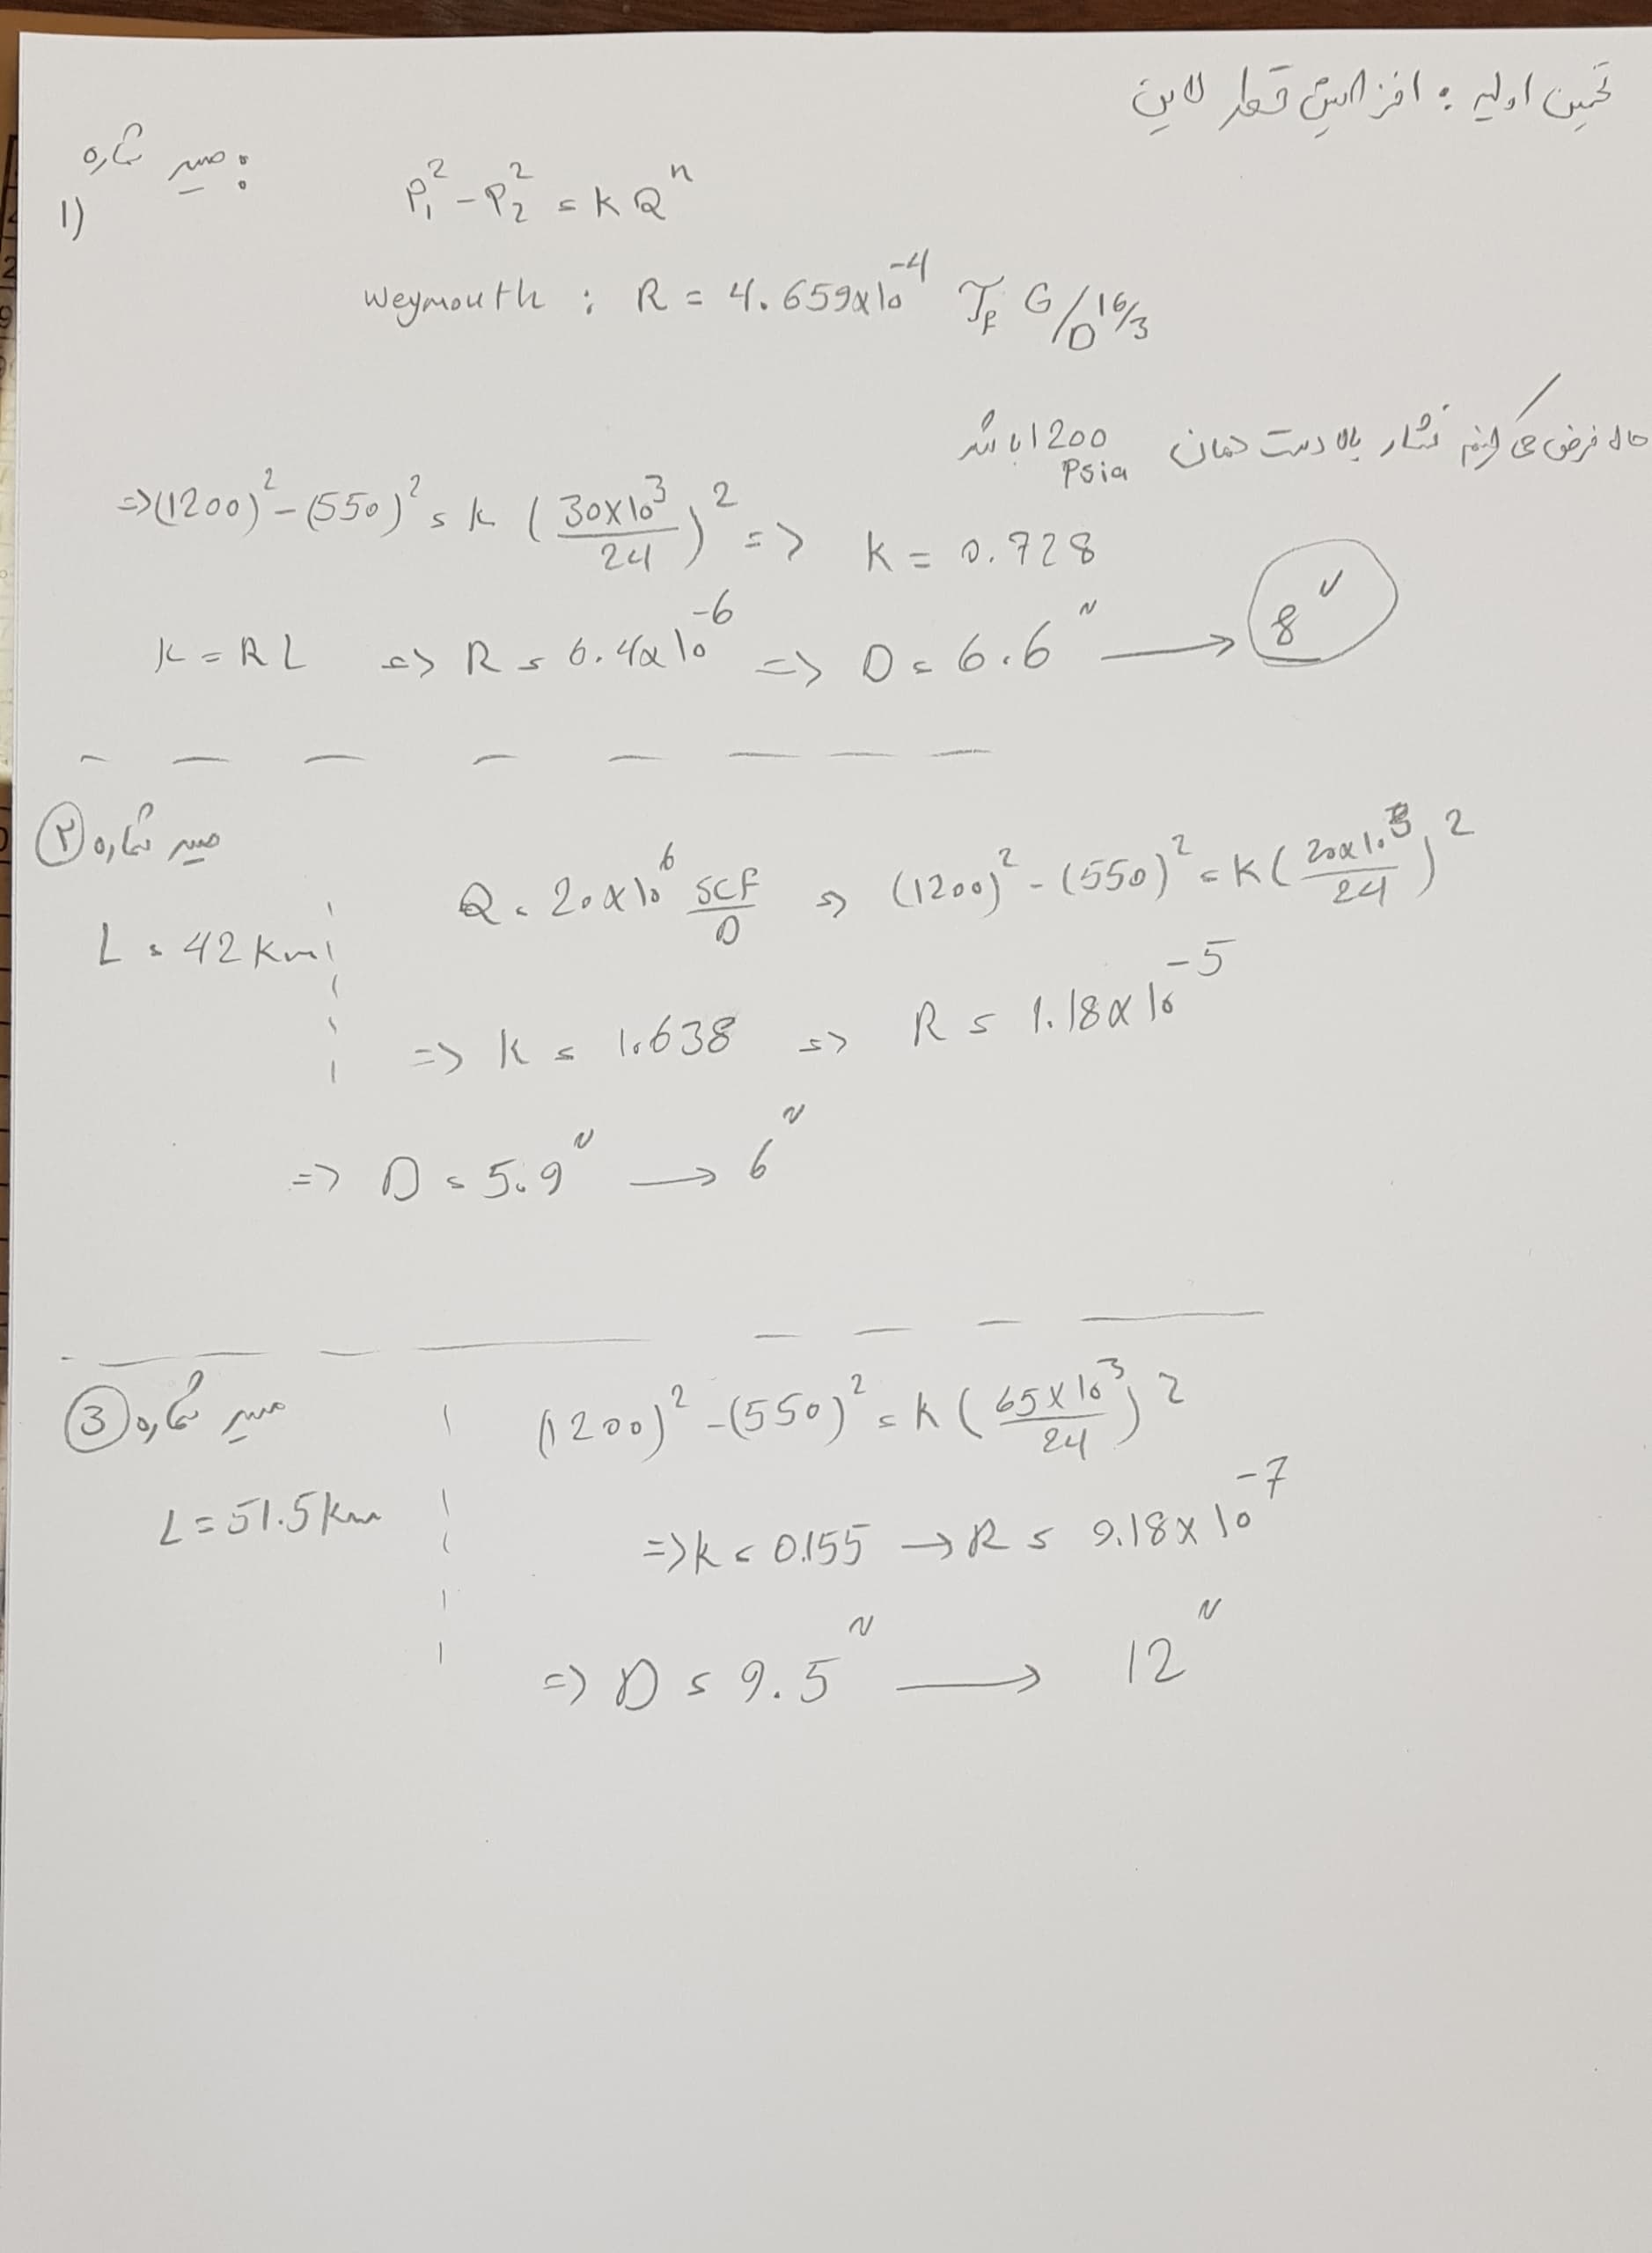 تخمین اولیه : افزایش قطر لاین
مسیر شماره :
1)
P₁² - P₂² = K Qⁿ
Weymouth : R = 4.659x10⁻⁴ T_f G/D^16/3
حال فرض می کنیم فشار بالادست همان 1200 Psia باشد
=> (1200)² - (550)² = K (30x10³/24)² => K = 0.728
K = RL => R = 6.4x10⁻⁶ => D = 6.6" → 8"
مسیر شماره ۲
L = 42 Km
Q = 20x10⁶ SCF/D => (1200)² - (550)² = K (20x10³/24)²
=> K = 1.638 => R = 1.18x10⁻⁵
=> D = 5.9" → 6"
مسیر شماره 3
(1200)² - (550)² = K (65x10³/24)²
L = 51.5 Km
=> K = 0.155 → R = 9.18x10⁻⁷
=> D = 9.5" → 12"